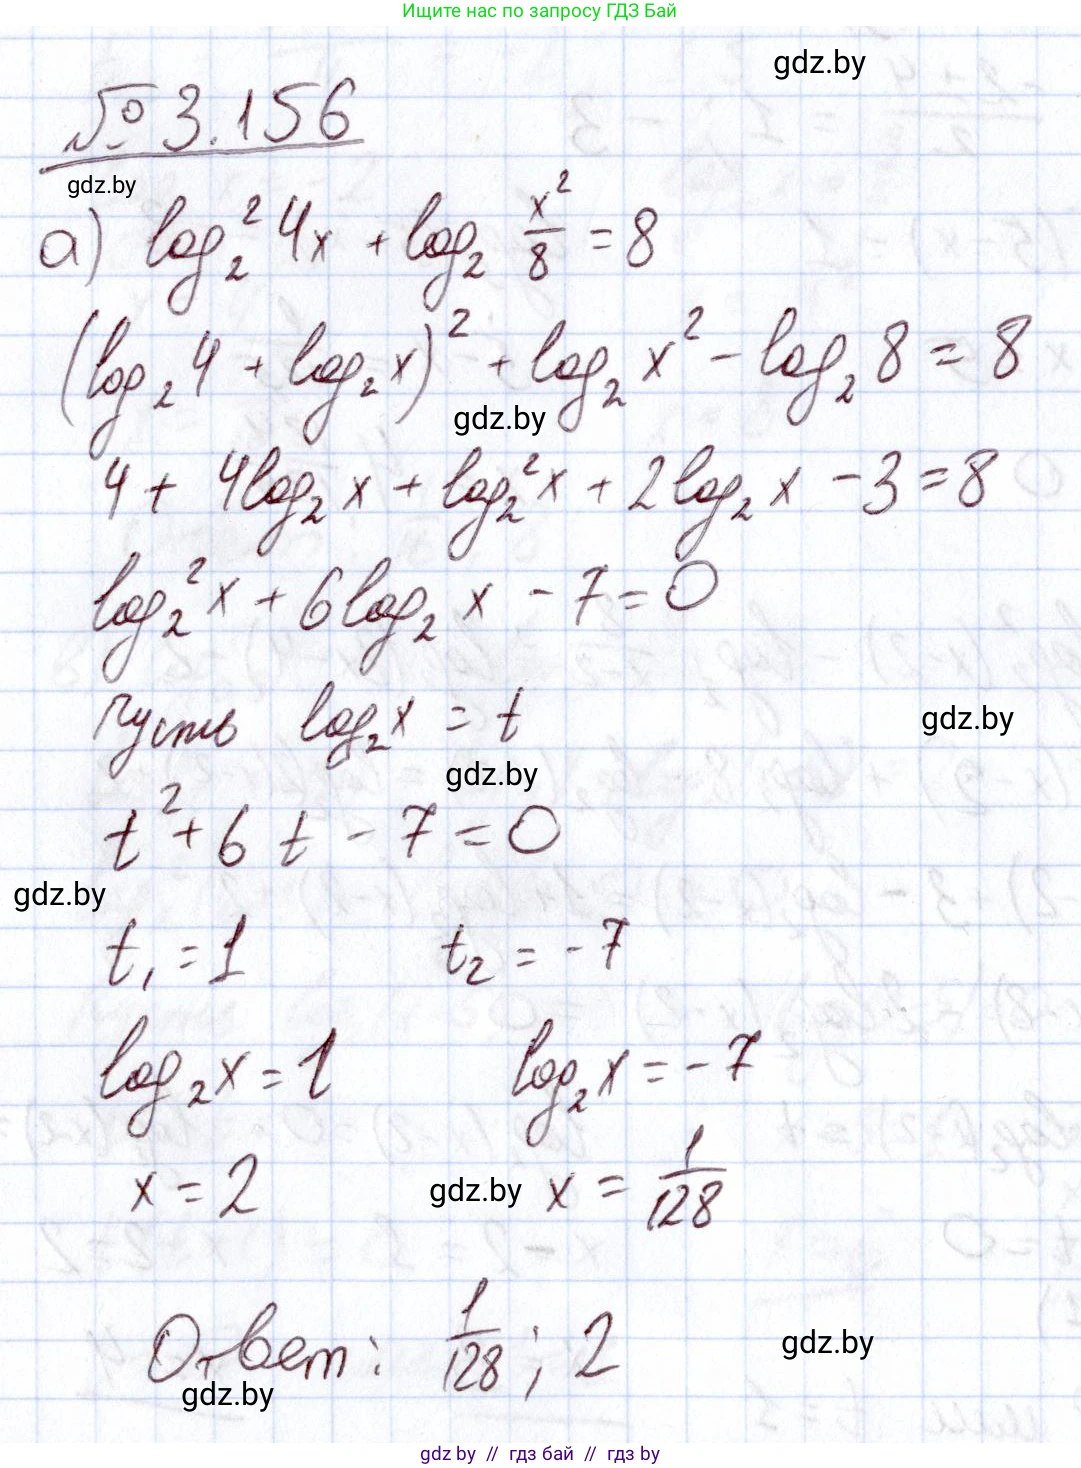 Ищите нас по запросу ГДЗ Бай
gdz.by
№ 3.156
gdz.by
а) log₂² 4x + log₂ x²/8 = 8
(log₂ 4 + log₂ x)² + log₂ x² - log₂ 8 = 8
gdz.by
4 + 4log₂ x + log₂² x + 2log₂ x - 3 = 8
log₂² x + 6log₂ x - 7 = 0
Пусть log₂ x = t
gdz.by
gdz.by
t² + 6t - 7 = 0
gdz.by
t₁ = 1 t₂ = -7
log₂ x = 1 log₂ x = -7
x = 2 gdz.by x = 1/128
Ответ: 1/128; 2
gdz.by
gdz.by
gdz by // гдз бай // гдз by